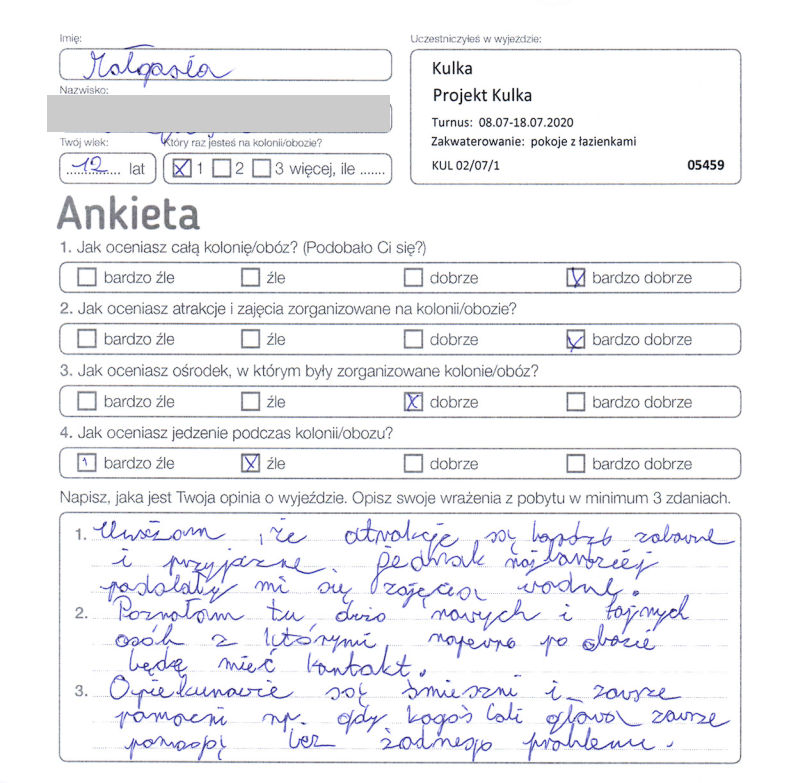 Imię:
Małgosia
Uczestniczyłeś w wyjeździe:
Kulka
Projekt Kulka
Turnus: 08.07-18.07.2020
Zakwaterowanie: pokoje z łazienkami
KUL 02/07/1 05459
Nazwisko:
Twój wiek: Który raz jesteś na kolonii/obozie?
12 lat 1 2 3 więcej, ile .......
Ankieta
1. Jak oceniasz całą kolonię/obóz? (Podobało Ci się?)
bardzo źle źle dobrze bardzo dobrze
2. Jak oceniasz atrakcje i zajęcia zorganizowane na kolonii/obozie?
bardzo źle źle dobrze bardzo dobrze
3. Jak oceniasz ośrodek, w którym były zorganizowane kolonie/obóz?
bardzo źle źle dobrze bardzo dobrze
4. Jak oceniasz jedzenie podczas kolonii/obozu?
bardzo źle źle dobrze bardzo dobrze
Napisz, jaka jest Twoja opinia o wyjeździe. Opisz swoje wrażenia z pobytu w minimum 3 zdaniach.
1. Uważam, że atrakcje są bardzo zabawne
i przyjazne. Jednak najbardziej
podobały mi się zajęcia wodne.
2. Poznałam tu dużo nowych i fajnych
osób z którymi napewno po obozie
będę mieć kontakt.
3. Opiekunowie są śmieszni i zawsze
pomocni np. gdy kogoś boli głowa zawsze
pomogą bez żadnego problemu.